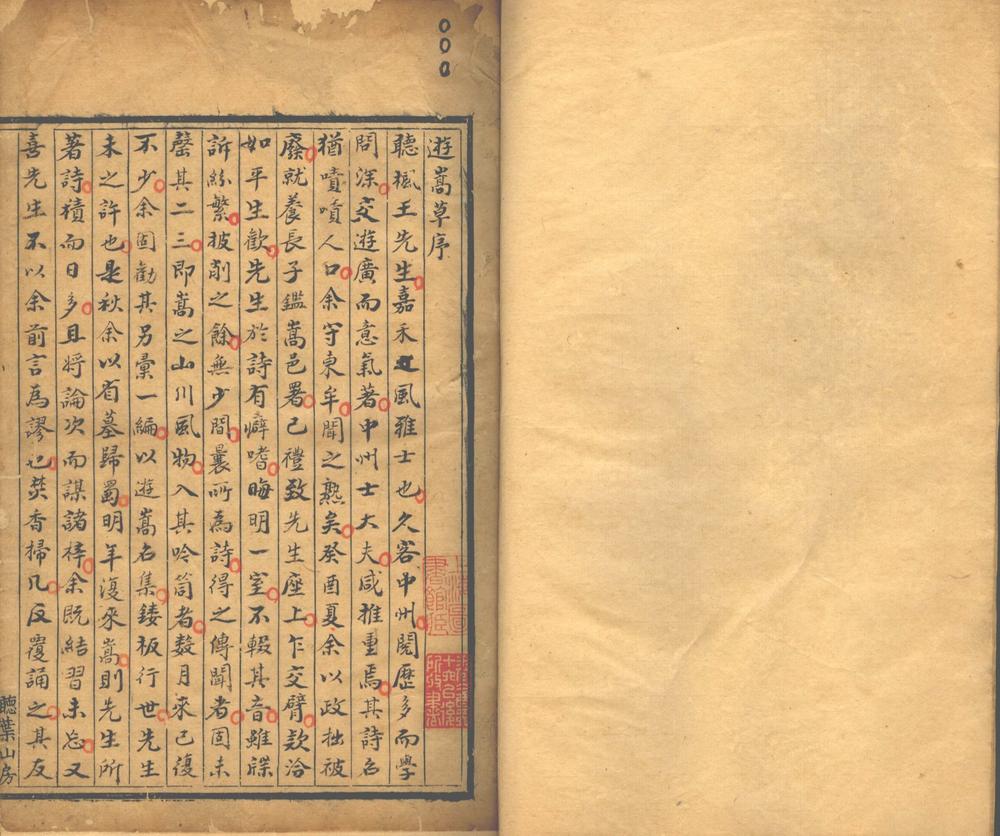 遊嵩草序
聽楓王先生嘉禾之風雅士也久客中州閱歷多而學
問深交遊廣而意氣著中州士大夫咸推重焉其詩名
猶嘖嘖人口余守東牟聞之熟矣癸酉夏余以政拙被
廢就養長子鑑嵩邑署已禮致先生座上乍交臂欵洽
如平生歡先生於詩有癖嗜晦明一室不輟其音雖牒
訴絲繁披削之餘無少間曩所為詩得之傳聞者固未
罄其二三即嵩之山川風物入其吟筒者数月來已復
不少余固勸其另彙一編以遊嵩名集鏤板行世先生
未之許也是秋余以省墓歸蜀明年復來嵩則先生所
著詩積而日多且將論次而謀諸梓余既結習未忘又
喜先生不以余前言為謬也焚香掃几反覆誦之其友
聽葉山房
上海圖書館藏
000